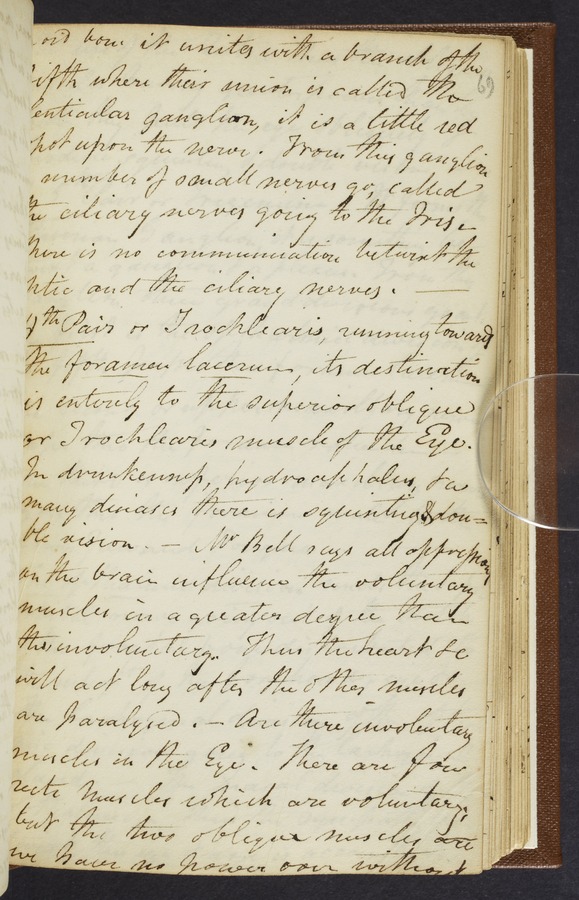 it unites with a branch of the
fifth where their union is called the
69
lenticular ganglion, it is a little red
spot upon the nerve. From this ganglion
number of small nerves go, called
the ciliary nerves going to the Iris.
there is no communication betwixt the
optic and the ciliary nerves. —
4th Pair or Trochlearis, running toward
the foramen lacerum, its destination
is entirely to the superior oblique
or Trochlearis muscle of the Eye.
In drunkenness, hydrocephalus, &a
many diseases there is squinting & dou=
ble vision. — Mr Bell says all oppression
on the brain influence the voluntary
muscles in a greater degree than
the involuntary. Thus the heart &c
will act long after the other muscles
are paralysed. — Are there involuntary
muscles in the Eye. There are four
recti muscles which are voluntary,
but the two oblique muscles are
we have no power over without